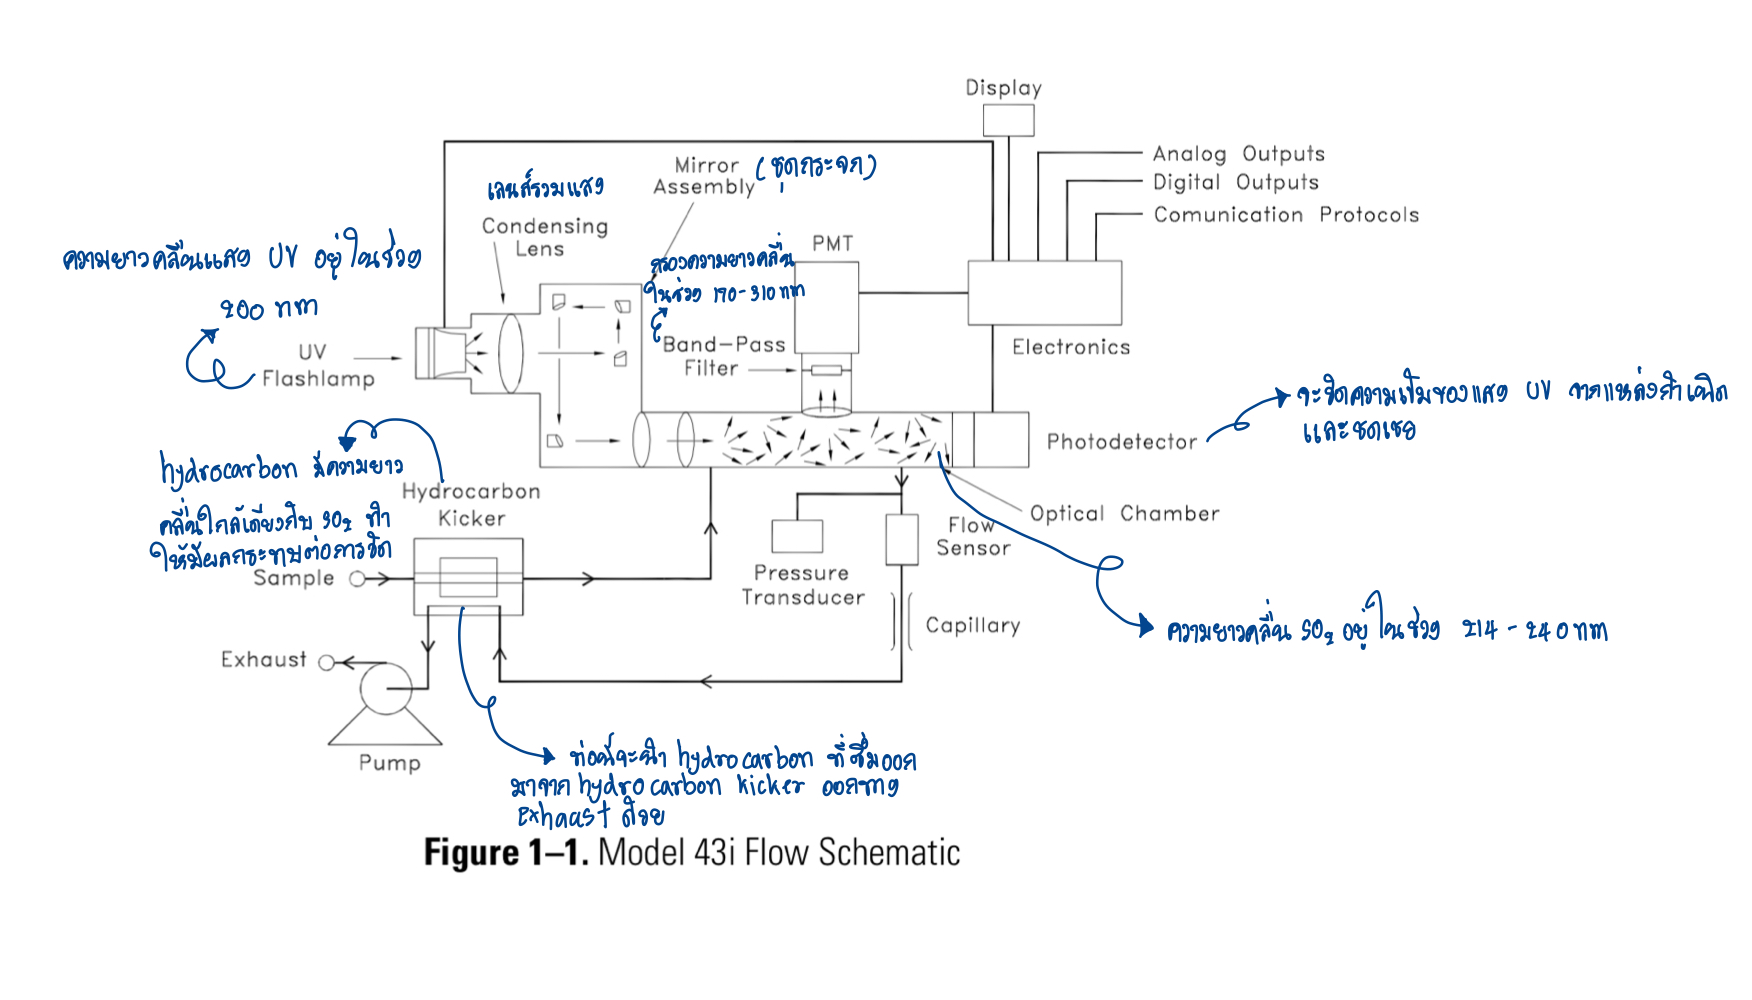 Display
Analog Outputs
Digital Outputs
Comunication Protocols
Mirror
Assembly
(ชุดกระจก)
เลนส์รวมแสง
Condensing
Lens
PMT
ความยาวคลื่นแสง UV อยู่ในช่วง
200 nm
กรองความยาวคลื่น
ในช่วง 190-310 nm
UV
Flashlamp
Band-Pass
Filter
Electronics
จะวัดความเข้มของแสง UV จากแหล่งกำเนิด
และชดเชย
Photodetector
hydrocarbon มีความยาว
คลื่นใกล้เคียงกับ SO₂ ทำ
ให้มีผลกระทบต่อการวัด
Hydrocarbon
Kicker
Optical Chamber
Flow
Sensor
Sample
Pressure
Transducer
Capillary
ความยาวคลื่น SO₂ อยู่ในช่วง 214 - 240 nm
Exhaust
Pump
ท่อนี้จะนำ hydrocarbon ที่ซึมออก
มาจาก hydrocarbon kicker ออกทาง
Exhaust ด้วย
Figure 1–1. Model 43i Flow Schematic